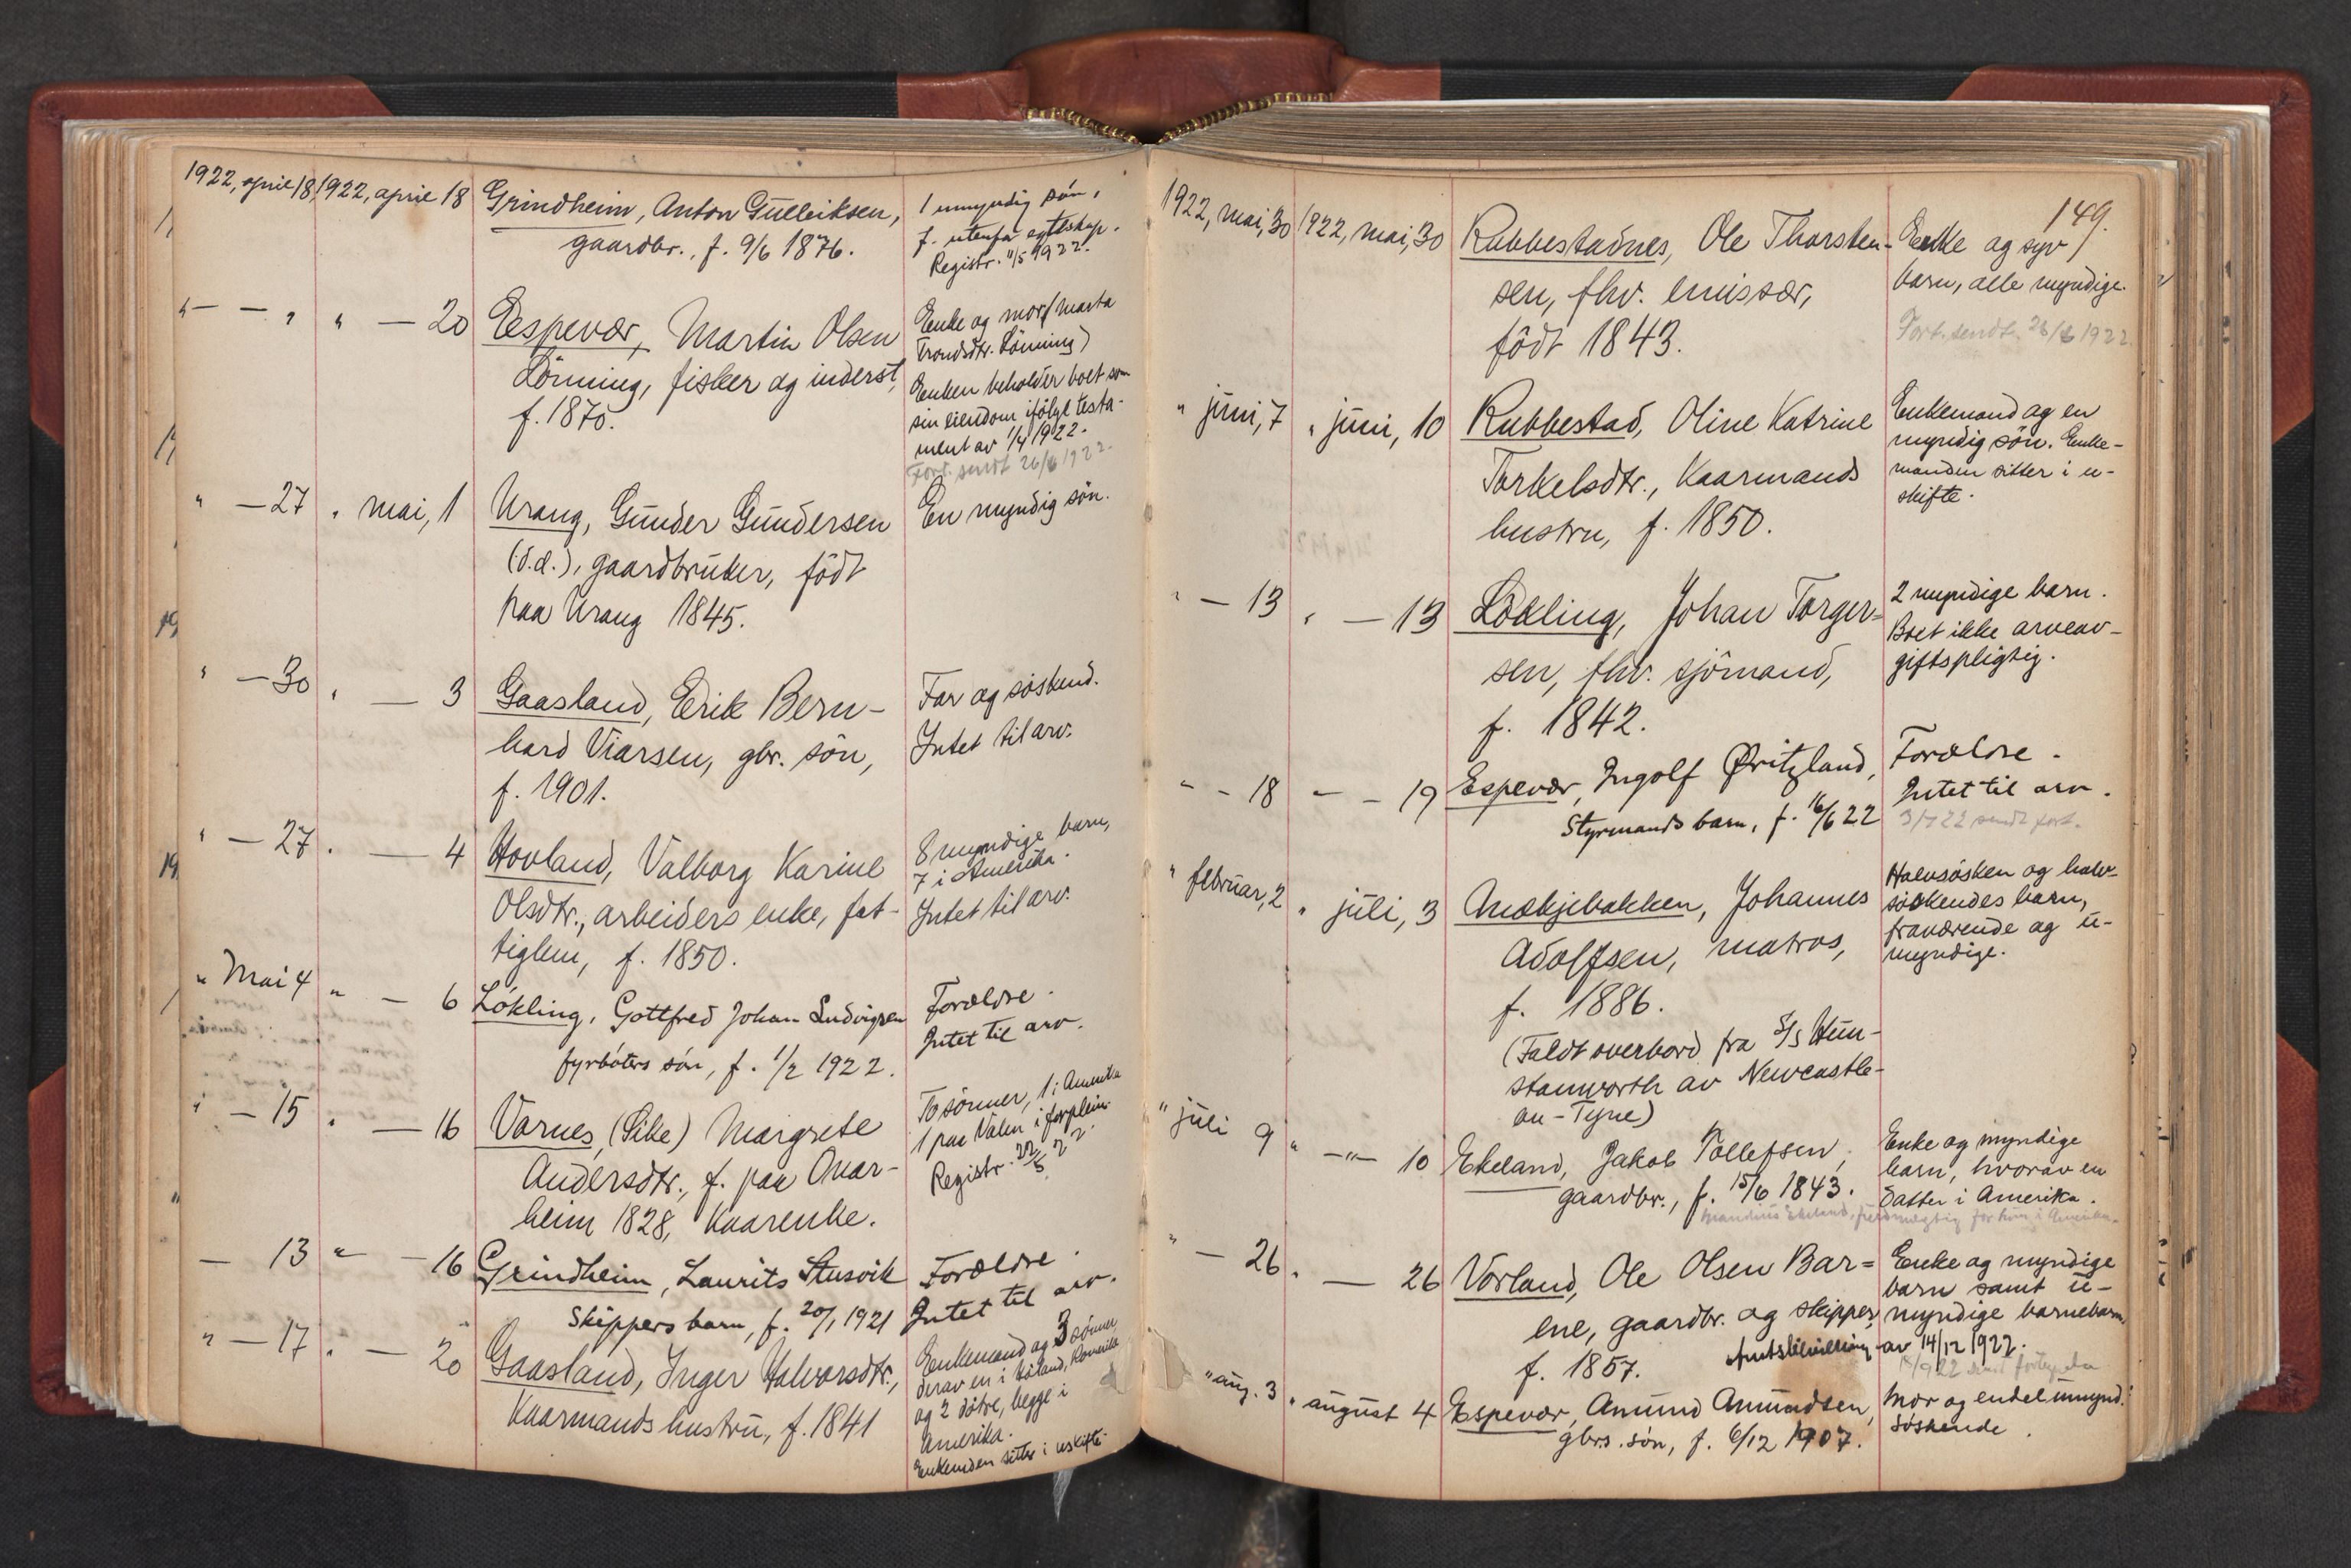 1922, april 18, 1922, april 18 Grindheim, Anton Gulleiksen, 1 umyndig søn,
gaardbr., f. 9/6 1876. f. utenfor egteskap.
Registr. 11/5 1922.
" — — " " — 20 Espevær, Martin Olsen Enke og mor (Marta
Lönning, fisker og inderst, Trondsdtr. Lönning)
f. 1875. Enken beholder boet som
sin eiendom ifölge testa-
ment av 1/4 1922.
Fort. sendt 26/6 1922.
" — 27 " mai, 1 Urang, Gunder Gundersen En myndig sön.
(d.d.), gaardbruker, födt
paa Urang 1845.
" — 30 " — 3 Gaasland, Erik Bern- Far og söskend.
hard Viarsen, gbr. sön, Intet til arv.
f. 1901.
" — 27 " — 4 Hovland, Valborg Karine 8 myndige barn,
Olsdtr., arbeiders enke, fat- 7 i Amerika.
tiglem, f. 1850. Intet til arv.
" Mai 4 " — 6 Lökling, Gottfred Johan Ludvigsen Forældre.
fyrböters sön, f. 1/2 1922. Intet til arv.
" — 15 " — 16 Varnes, (Sike) Margrete To sönner, 1 i Amerika
Andersdtr., f. paa Qvar- 1 paa Valen i forplein.
heim 1828, kaarenke. Registr. 22/5 22.
— 13 " — 16 Grindheim, Laurits Stusvik Forældre.
Skippers barn, f. 20/1 1921 Intet til arv.
" — 17 " — 20 Gaasland, Inger Halvorsdtr., Enkemand og 3 sönner
Kaarmands hustru, f. 1841 derav en i
og 2 dötre, begge i
Amerika.
Enkemden sitter i uskifte.
149.
1922, mai, 30 1922, mai, 30 Rubbestadnes, Ole Thorsten- Enke og syv
sen, fhv. emissær, barn, alle myndige.
födt 1843. Fort. sendt 26/6 1922
" juni, 7 " juni, 10 Rubbestad, Oline Katrine Enkemand og en
Torkelsdtr., Kaarmands myndig sön. Enke-
hustru, f. 1850. manden sitter i u-
skifte.
" — 13 " — 13 Lökling, Johan Torger- 2 myndige barn.
sen, fhv. sjömand, Boet ikke arveav-
f. 1842. giftspligtig.
" — 18 — — 19 Espevær, Ingolf Øritzland, Forældre.
Styrmands barn, f. 16/6 22 Intet til arv.
3/7 22 sendt fort.
" februar, 2 " juli, 3 Mækjebakken, Johannes Halvsösken og halv-
Adolfsen, matros, söskendes barn,
f. 1886. fraværende og u-
(Faldt overbord fra S/S Hun- myndige.
stanworth av Newcastle-
on-Tyne)
" juli 9 " — " — 10 Ekeland, Jakob Tollefsen, Enke og myndige
gaardbr., f. 15/6 1843. barn, hvorav en
datter i Amerika.
Mandius Ekeland, fuldmægtig for hun i Amerika.
" — 26 " — 26 Vorland, Ole Olsen Bar= Enke og myndige
ene, gaardbr. og skipper, barn samt u-
f. 1857. myndige barnebarn.
Amtsbevilling av 14/12 1922.
" aug. 3 " august 4 Espevær, Amund Amundsen, Mor og endel umynd.
gbrs. sön, f. 6/12 1907. söskende.